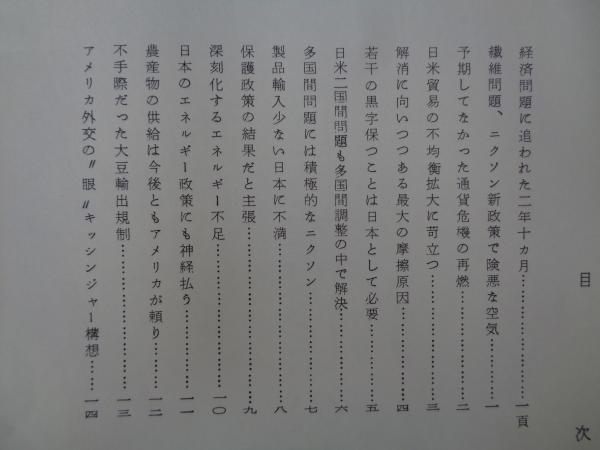 目次
経済問題に追われた二年十カ月……………………一頁
繊維問題、ニクソン新政策で険悪な空気……………一
予期してなかった通貨危機の再燃……………………二
日米貿易の不均衡拡大に苛立つ………………………三
解消に向いつつある最大の摩擦原因…………………四
若干の黒字保つことは日本として必要………………五
日米二国間問題も多国間調整の中で解決……………六
多国間問題には積極的なニクソン……………………七
製品輸入少ない日本に不満……………………………八
保護政策の結果だと主張………………………………九
深刻化するエネルギー不足…………………………一〇
日本のエネルギー政策にも神経払う………………一一
農産物の供給は今後ともアメリカが頼り…………一二
不手際だった大豆輸出規制…………………………一三
アメリカ外交の〃眼〃キッシンジャー構想………一四